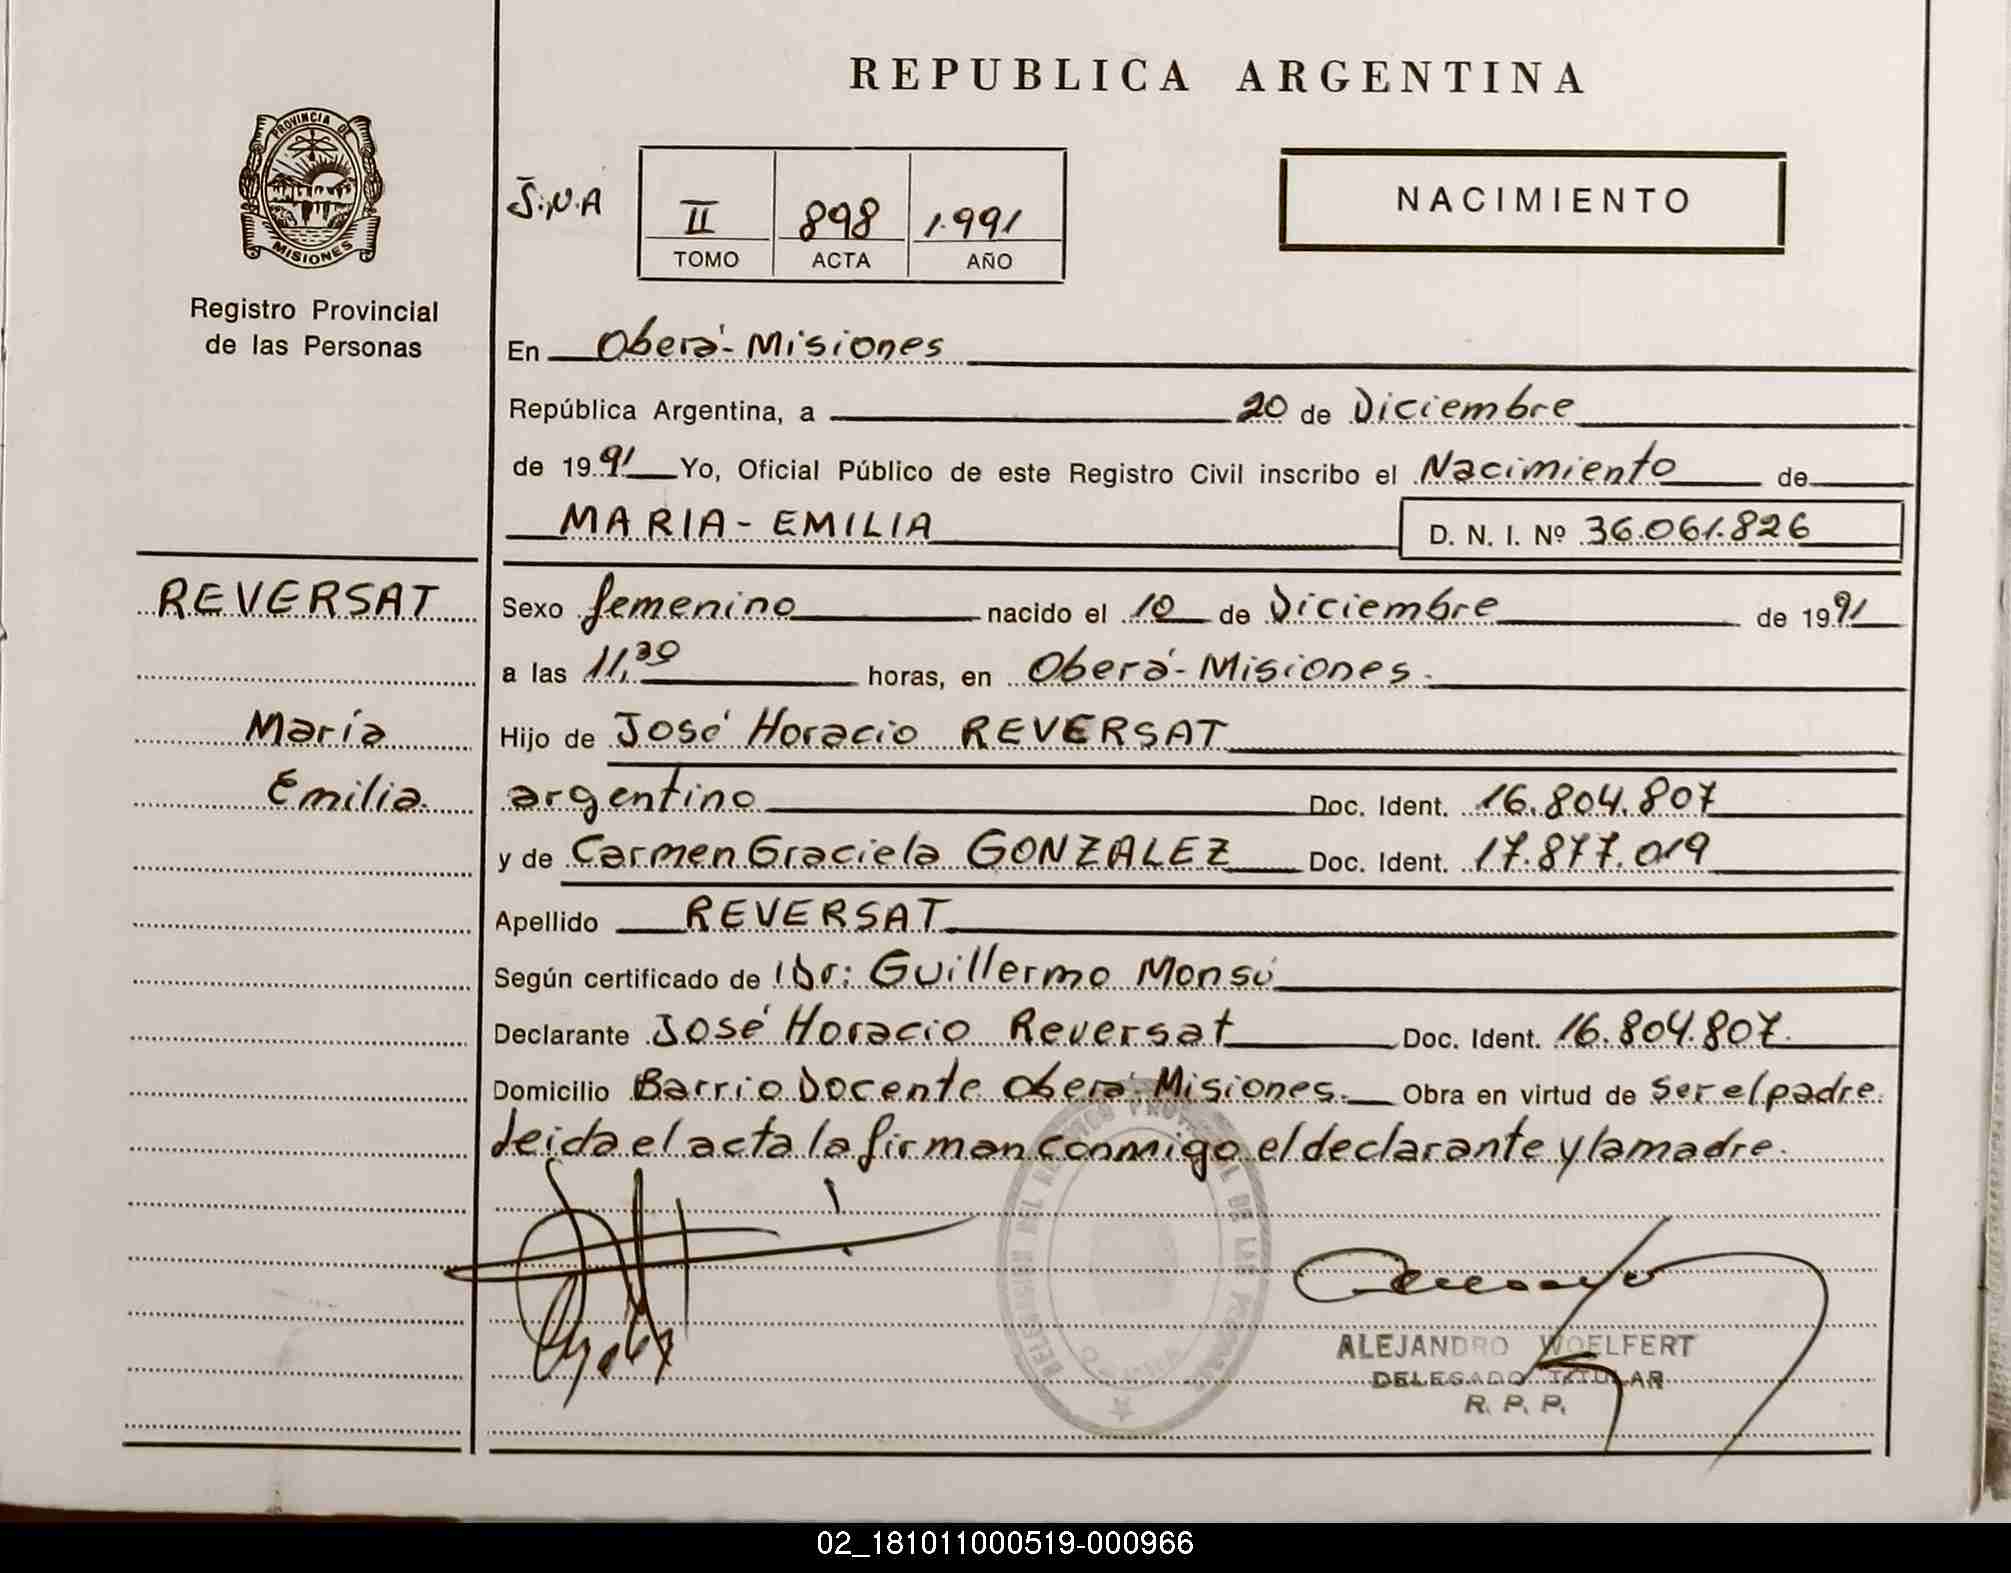 REPUBLICA ARGENTINA
PROVINCIA DE
MISIONES
Registro Provincial
de las Personas
S.N.A
II 898 1.991
TOMO ACTA AÑO
NACIMIENTO
En Oberá-Misiones
República Argentina, a 20 de Diciembre
de 1991 Yo, Oficial Público de este Registro Civil inscribo el Nacimiento de
MARIA-EMILIA D. N. I. Nº 36.061.826
REVERSAT
María
Emilia.
Sexo femenino nacido el 10 de Diciembre de 1991
a las 11,30 horas, en Oberá-Misiones.
Hijo de José Horacio REVERSAT
argentino Doc. Ident. 16.804.807
y de Carmen Graciela GONZALEZ Doc. Ident. 17.877.019
Apellido REVERSAT
Según certificado de Dr: Guillermo Monsú
Declarante José Horacio Reversat Doc. Ident. 16.804.807.
Domicilio Barrio Docente Oberá-Misiones. Obra en virtud de ser el padre.
Leida el acta la firman conmigo el declarante y la madre.
ALEJANDRO WOELFERT
DELEGADO TITULAR
R. P. P.
02_181011000519-000966